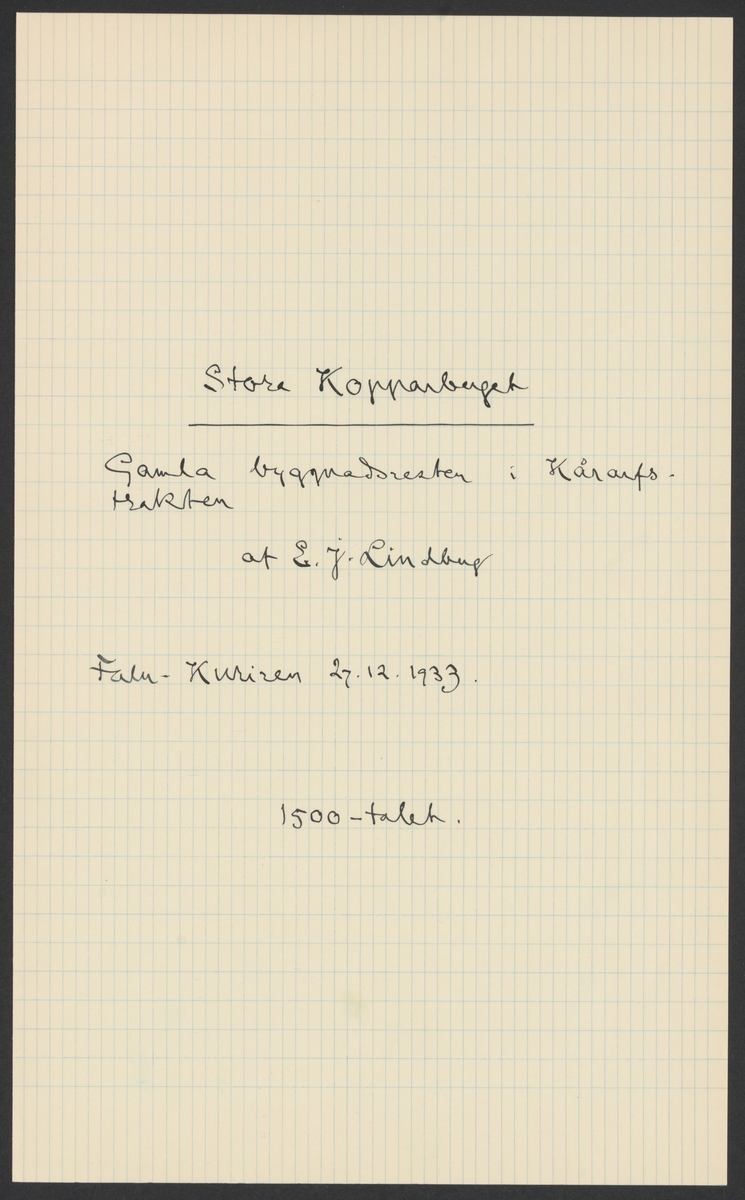 Stora Kopparberget
Gamla byggnadsrester i Kårarfs-
trakten
af E. J. Lindberg
Falu-Kuriren 27.12.1933.
1500-talet.